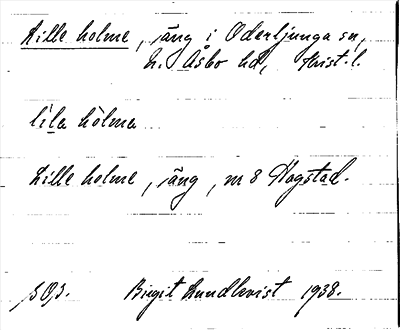 Lille holme, äng i Oderljunga sn,
N. Åsbo hd, Krist. l.
li̇̀la hòlmə
Lille holme, äng, m 8 Hagstad.
Birgit Lundkvist 1938.